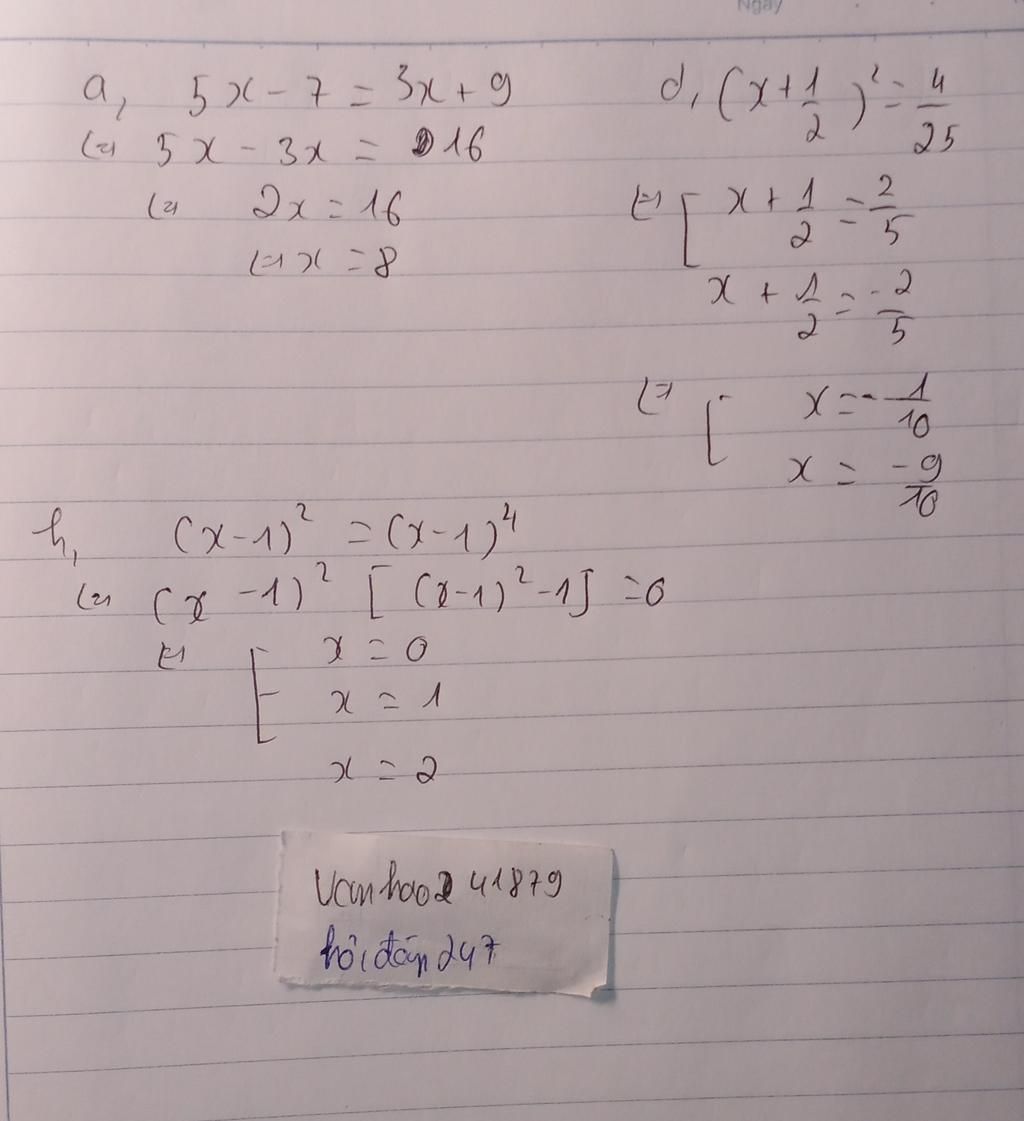 Ngày
a, 5x - 7 = 3x + 9
<=> 5x - 3x = 16
<=> 2x = 16
<=> x = 8
d, (x + 1/2)² = 4/25
<=> [ x + 1/2 = 2/5
x + 1/2 = -2/5
<=> [ x = -1/10
x = -9/10
h, (x-1)² = (x-1)⁴
<=> (x-1)² [(x-1)²-1] = 0
<=> [ x = 0
x = 1
x = 2
vanhao241879
hỏiđáp247